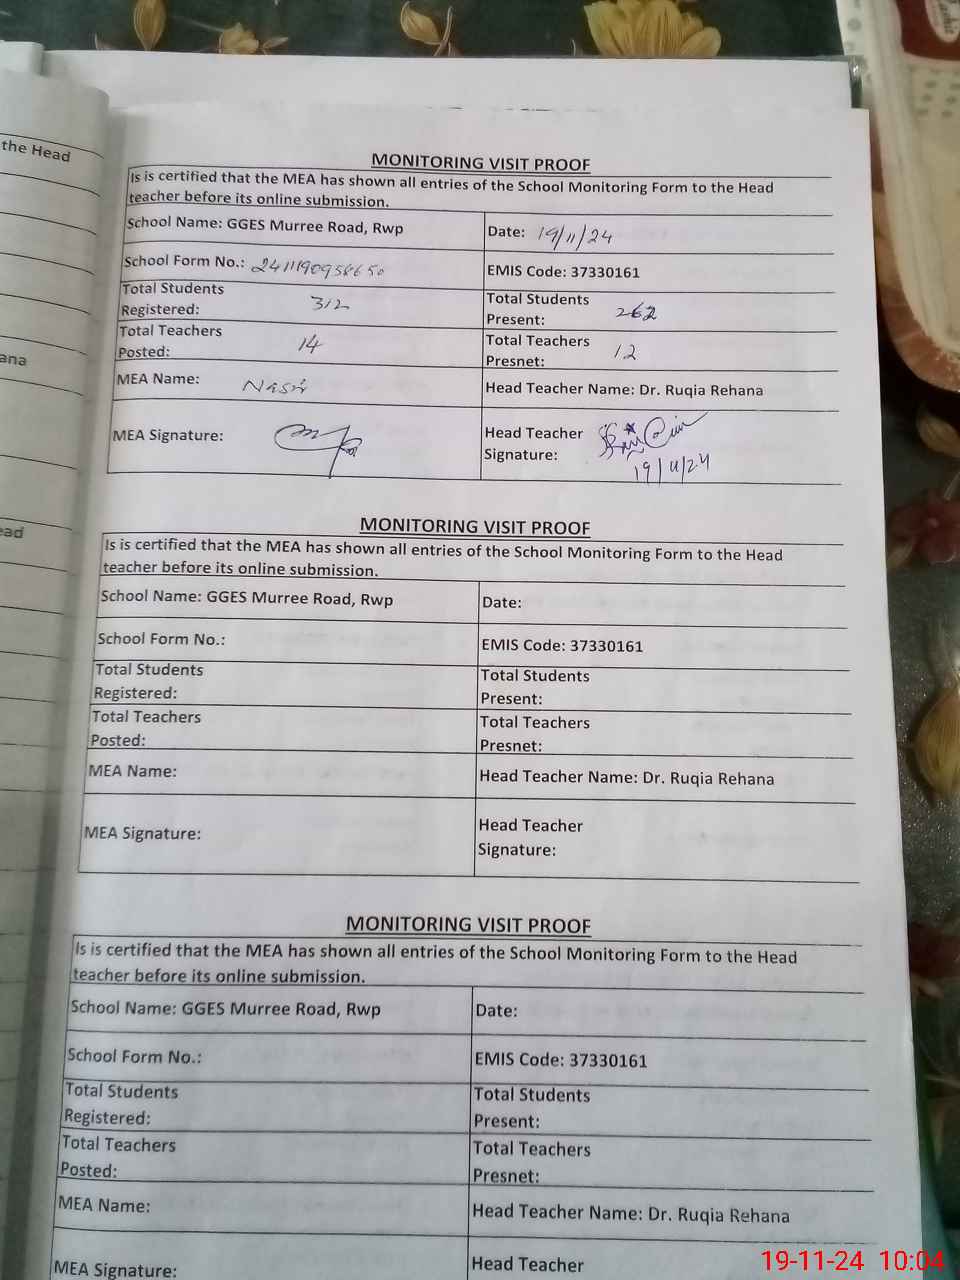 the Head
ana
ead
MONITORING VISIT PROOF
Is is certified that the MEA has shown all entries of the School Monitoring Form to the Head
teacher before its online submission.
School Name: GGES Murree Road, Rwp
Date: 19/11/24
School Form No.:
EMIS Code: 37330161
Total Students
Registered: 312
Total Students
Present: 262
Total Teachers
Posted: 14
Total Teachers
Presnet: 12
MEA Name: Nasir
Head Teacher Name: Dr. Ruqia Rehana
MEA Signature:
Head Teacher
Signature:
19/11/24
MONITORING VISIT PROOF
Is is certified that the MEA has shown all entries of the School Monitoring Form to the Head
teacher before its online submission.
School Name: GGES Murree Road, Rwp
Date:
School Form No.:
EMIS Code: 37330161
Total Students
Registered:
Total Students
Present:
Total Teachers
Posted:
Total Teachers
Presnet:
MEA Name:
Head Teacher Name: Dr. Ruqia Rehana
MEA Signature:
Head Teacher
Signature:
MONITORING VISIT PROOF
Is is certified that the MEA has shown all entries of the School Monitoring Form to the Head
teacher before its online submission.
School Name: GGES Murree Road, Rwp
Date:
School Form No.:
EMIS Code: 37330161
Total Students
Registered:
Total Students
Present:
Total Teachers
Posted:
Total Teachers
Presnet:
MEA Name:
Head Teacher Name: Dr. Ruqia Rehana
MEA Signature:
Head Teacher
19-11-24 10:04